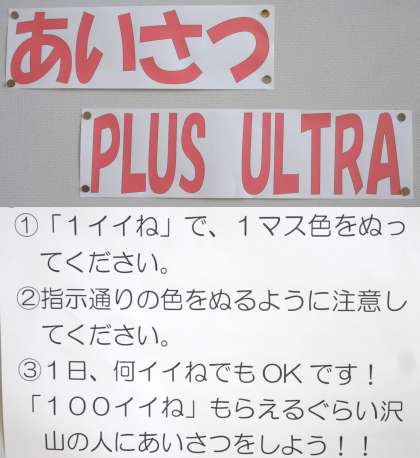 あいさつ
PLUS ULTRA
①「1イイね」で、1マス色をぬっ
てください。
②指示通りの色をぬるように注意し
てください。
③1日、何イイねでもOKです！
「100イイね」もらえるぐらい沢
山の人にあいさつをしよう！！